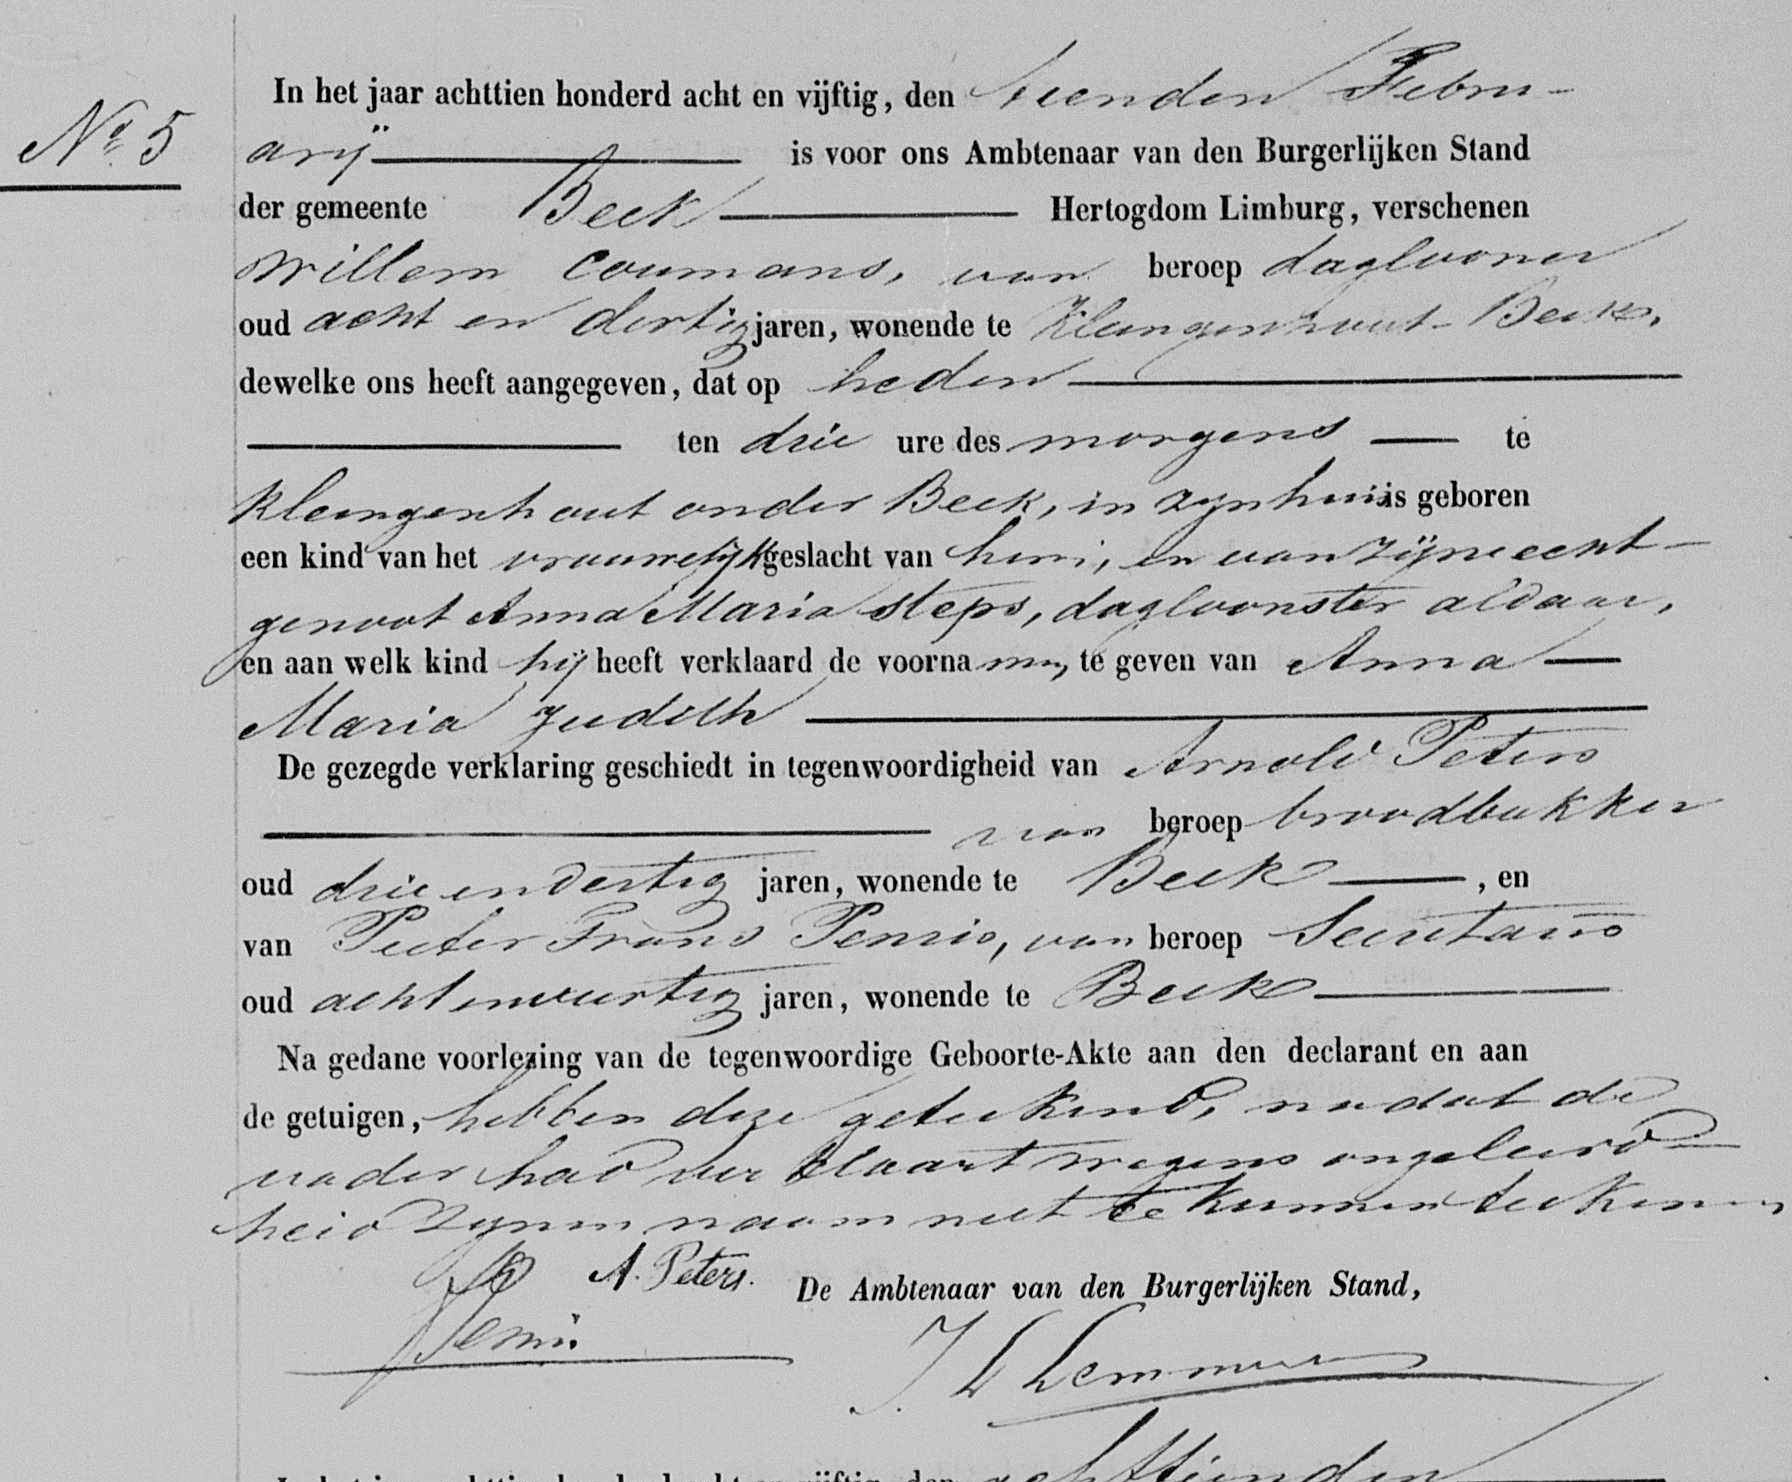 In het jaar achttien honderd acht en vijftig, den tienden Febru-
Nº 5
arij is voor ons Ambtenaar van den Burgerlijken Stand
der gemeente Beek Hertogdom Limburg, verschenen
Willem Coumans, van beroep daglooner
oud acht en dertig jaren, wonende te Kleingenhout-Beek,
dewelke ons heeft aangegeven, dat op heden
ten drie ure des morgens te
Kleingenhout onder Beek, in zijn huis is geboren
een kind van het vrouwelijk geslacht van hem, en van zijne echt-
genoot Anna Maria Steps, dagloonster aldaar,
en aan welk kind hij heeft verklaard de voornamen, te geven van Anna
Maria Judith
De gezegde verklaring geschiedt in tegenwoordigheid van Arnold Peters
van beroep broodbakker
oud drieendertig jaren, wonende te Beek, en
van Pieter Frans Penris, van beroep Secretaris
oud achtenveertig jaren, wonende te Beek
Na gedane voorlezing van de tegenwoordige Geboorte-Akte aan den declarant en aan
de getuigen, hebben deze geteekend, nadat de
vader had verklaart wegens ongeleerd-
heid zynen naam niet te kunnen teekenen
A. Peters.
De Ambtenaar van den Burgerlijken Stand,
Penris
Lemmens
achttienden